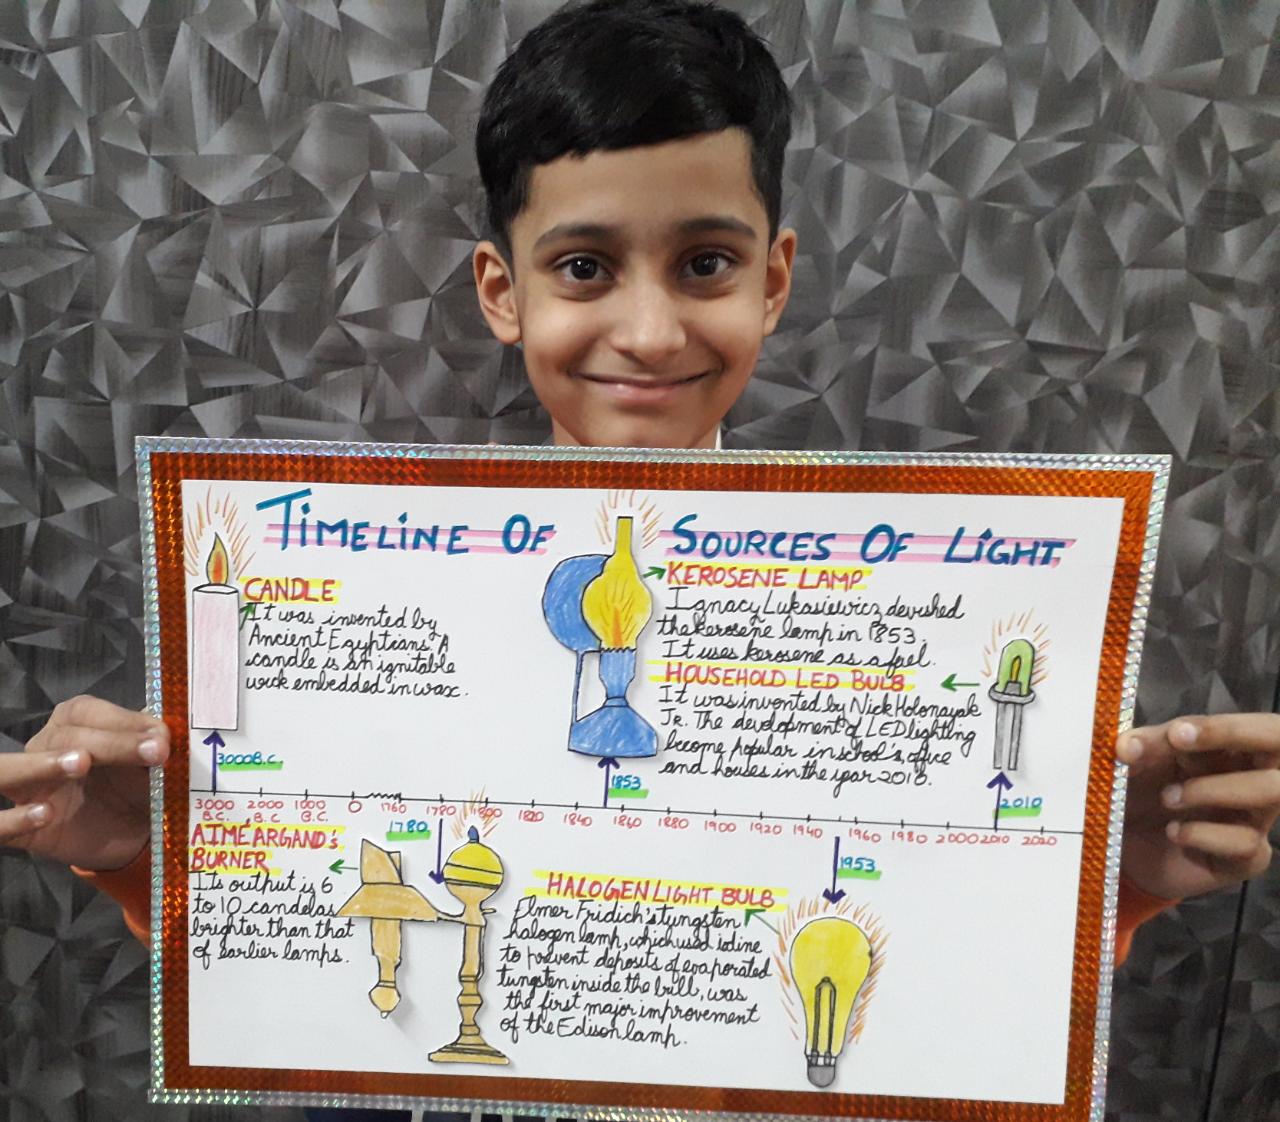 TIMELINE OF SOURCES OF LIGHT
CANDLE
It was invented by
Ancient Egyptians. A
candle is an ignitable
wick embedded in wax.
3000B.C.
KEROSENE LAMP
Ignacy Lukasiewicz devished
the kerosene lamp in 1853.
It uses kerosene as a fuel.
HOUSEHOLD LED BULB
It was invented by Nick Holonayak
Jr. The development of LED lighting
become popular in school's, office
and houses in the year 2010.
1853
2010
3000 B.C. 2000 B.C 1000 B.C. 0 1760 1780 1800 1820 1840 1860 1880 1900 1920 1940 1960 1980 2000 2010 2020
1780
1953
AIMÉ ARGAND'S
BURNER
Its output is 6
to 10 candelas
brighter than that
of earlier lamps.
HALOGEN LIGHT BULB
Elmer Fridich's tungsten
halogen lamp, which used iodine
to prevent deposits of evaporated
tungsten inside the bill, was
the first major improvement
of the Edison lamp.